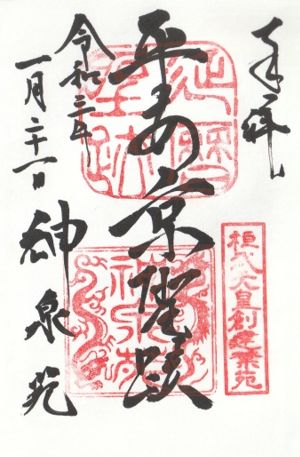 奉拝
平安京聖跡
令和三年
一月二十一日
神泉苑
延暦
聖跡
桓武天皇創建禁苑